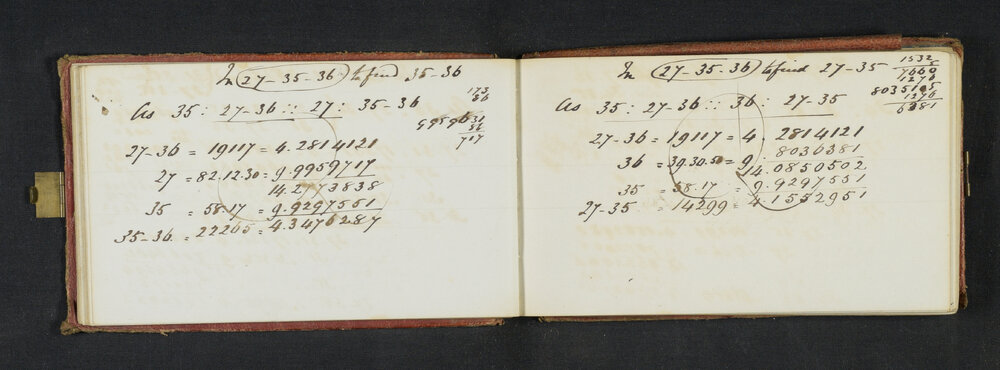 In (27-35-36) to find 35-36
As 35 : 27-36 :: 27 : 35-36
173
86
9959631
86
717
27-36 = 19117 = 4.2814121
27 = 82.12.30 = 9.9959717
14.2773838
35 = 58.17 = 9.9297551
35-36 = 22265 = 4.3476287
In (27-35-36) to find 27-35
1532
5
7660
1276
8035105
1276
6381
As 35 : 27-36 :: 36 : 27-35
27-36 = 19117 = 4.2814121
36 = 39.30.50 = 9.8036381
14.0850502
35 = 58.17 = 9.9297551
27-35 = 14299 = 4.1552951